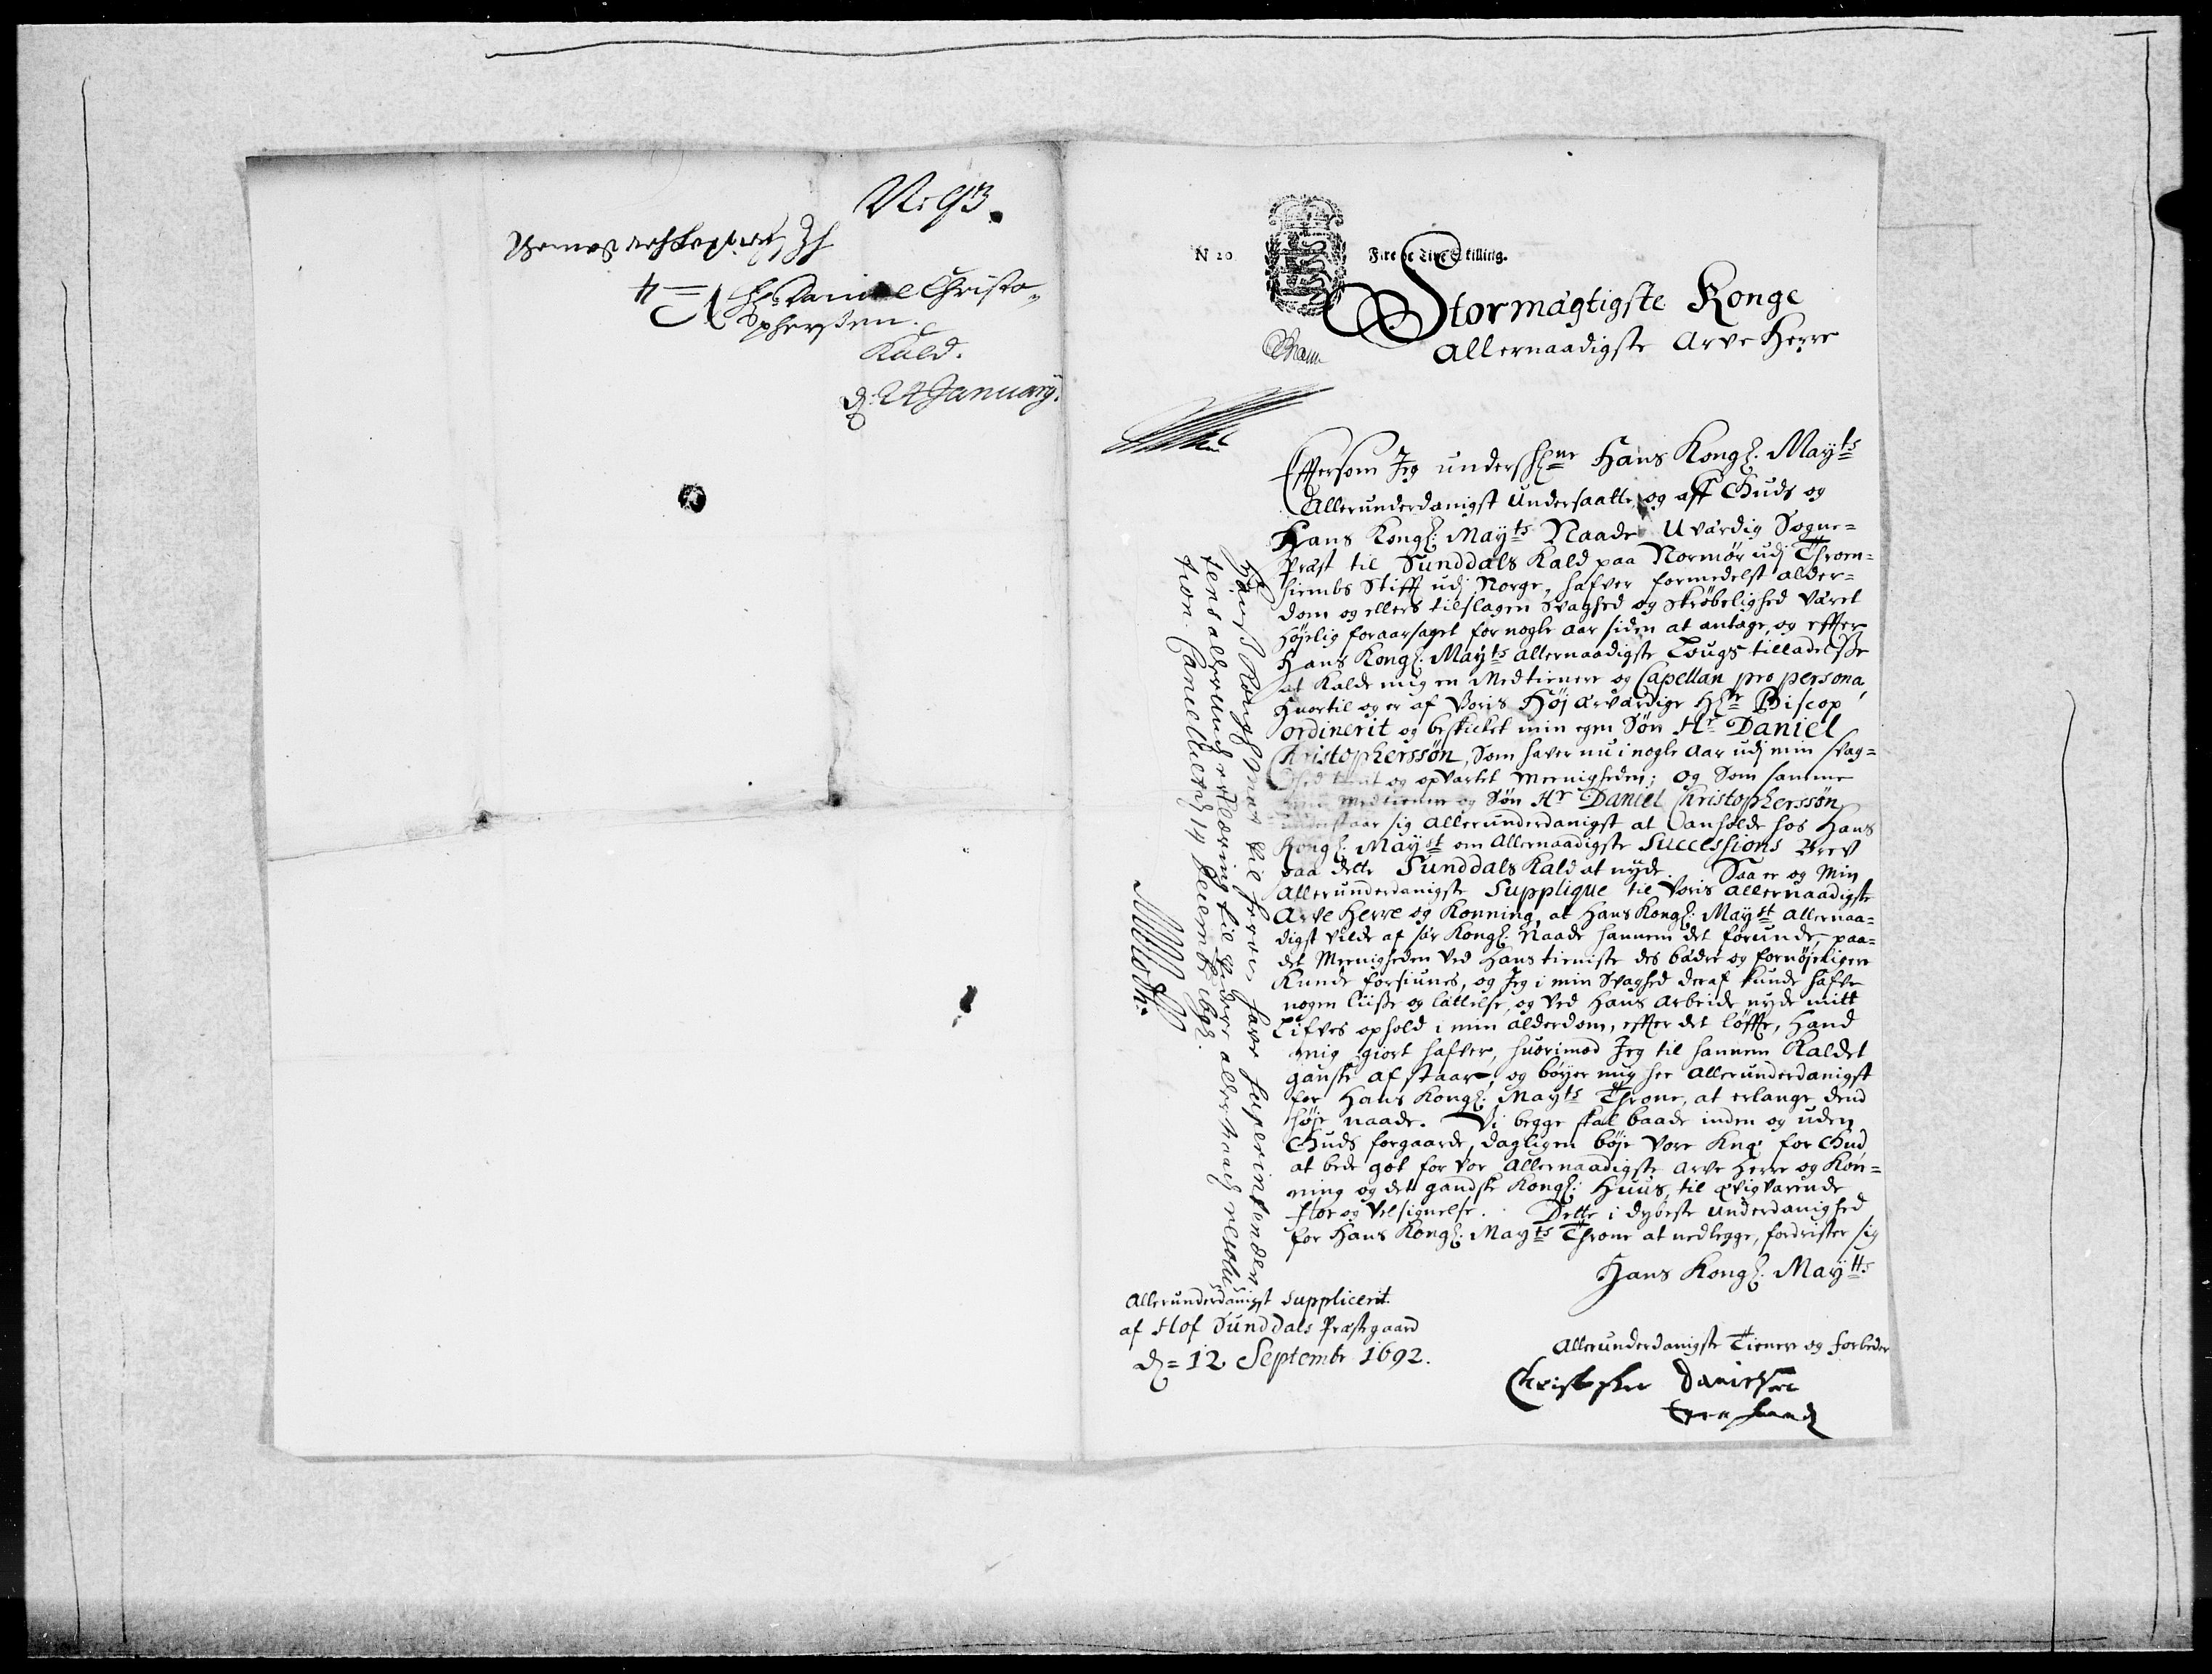 N: 93.
N = 4
Hr: Daniel Christo-
phersen.
Kald.
d: 21 January.
N 20
Fire oc Tive Skilling.
Stormägtigste Konge
Allernaadigste Arve Herre
Effersom Jeg underschrne Hans Kongl. Mayts
Allerunderdanigst undersaatte, og aff Guds og
Hans Kongl: Mayts Naade Uvärdig Sogne=
Præst til Sunddals Kald paa Normör udj Throen=
hiembs Stifft udj Norge, hafver formedelst alder=
dom og ellers tilslagen Svaghed og Skröbelighed väret
höjelig foraarsaget for nogle aar siden at antage, og effter
Hans Kongl: Mayts allernaadigste Lougs tilladelsse
at Kalde mig en Medtienere og Capellan pro persona,
Huortil og er af Voris Höj ærværdige Hr Biscop
ordinerit og beskicket min egen Sön Hr Daniel
Christopherssön, Som haver nu i nogle Aar udj min svag=
hed tient og opvartet Meenigheden; og Som samme
min Medtienere og Sön Hr Daniel Christopherssön
understaar sig Allerunderdanigst at anholde hos Hans
Kongl: Mayst om Allernaadigste Successions Brev
paa dette Sunddals Kald at nyde. Saa er og Min
allerunderdanigste Supplique til Voris allernaadigste
Arve Herre og Konning, at Hans Kongl: Mayst allernaa=
digst vilde af sär Kongl: Naade hannem det forunde, paa=
det Meenigheden ved Hans tieniste des bädre og fornöjeligere
Kunde forsiunes, og Jeg i min Svaghed deraf kunde hafve
nogen liisse og lättelse, og ved Hans arbeide nyde mitt
Lifves ophold i min alderdom, effter det löffte, Hand
mig giort hafver, huorimod Jeg til hannem Kaldet
ganske afstaar, og böyer mig her allerunderdanigst
for Hans Kongl: Mayts Throne, at erlange dend
höje naade. Vi begge skal baade inden og uden
Guds forgaarde, dagligen böje vore Knæ for Gud
at bede got for vor allernaadigste Arve Herre og Kon=
ning og det gandske Kongl: Huus, til ævigvarende
flor og velsignelse. Dette i dybeste underdanighed
for Hans Kongl: Mayts Throne at nedlegge, fordrister sig
Hans Kongl. Maytts
Allerunderdanigste Tiener og forbeder
Christopher Danielsen
Egen haand
Allerunderdanigst Suppliceret
af Hof Sunddals Præstegaard
d= 12 Septembr 1692.
Hans Kongl: Mat vil herom have Superintenden-
tens allerund: erklæring til videre allernaad: resolu-
tion. Cancelliet d: 14 Decemb: 1692.